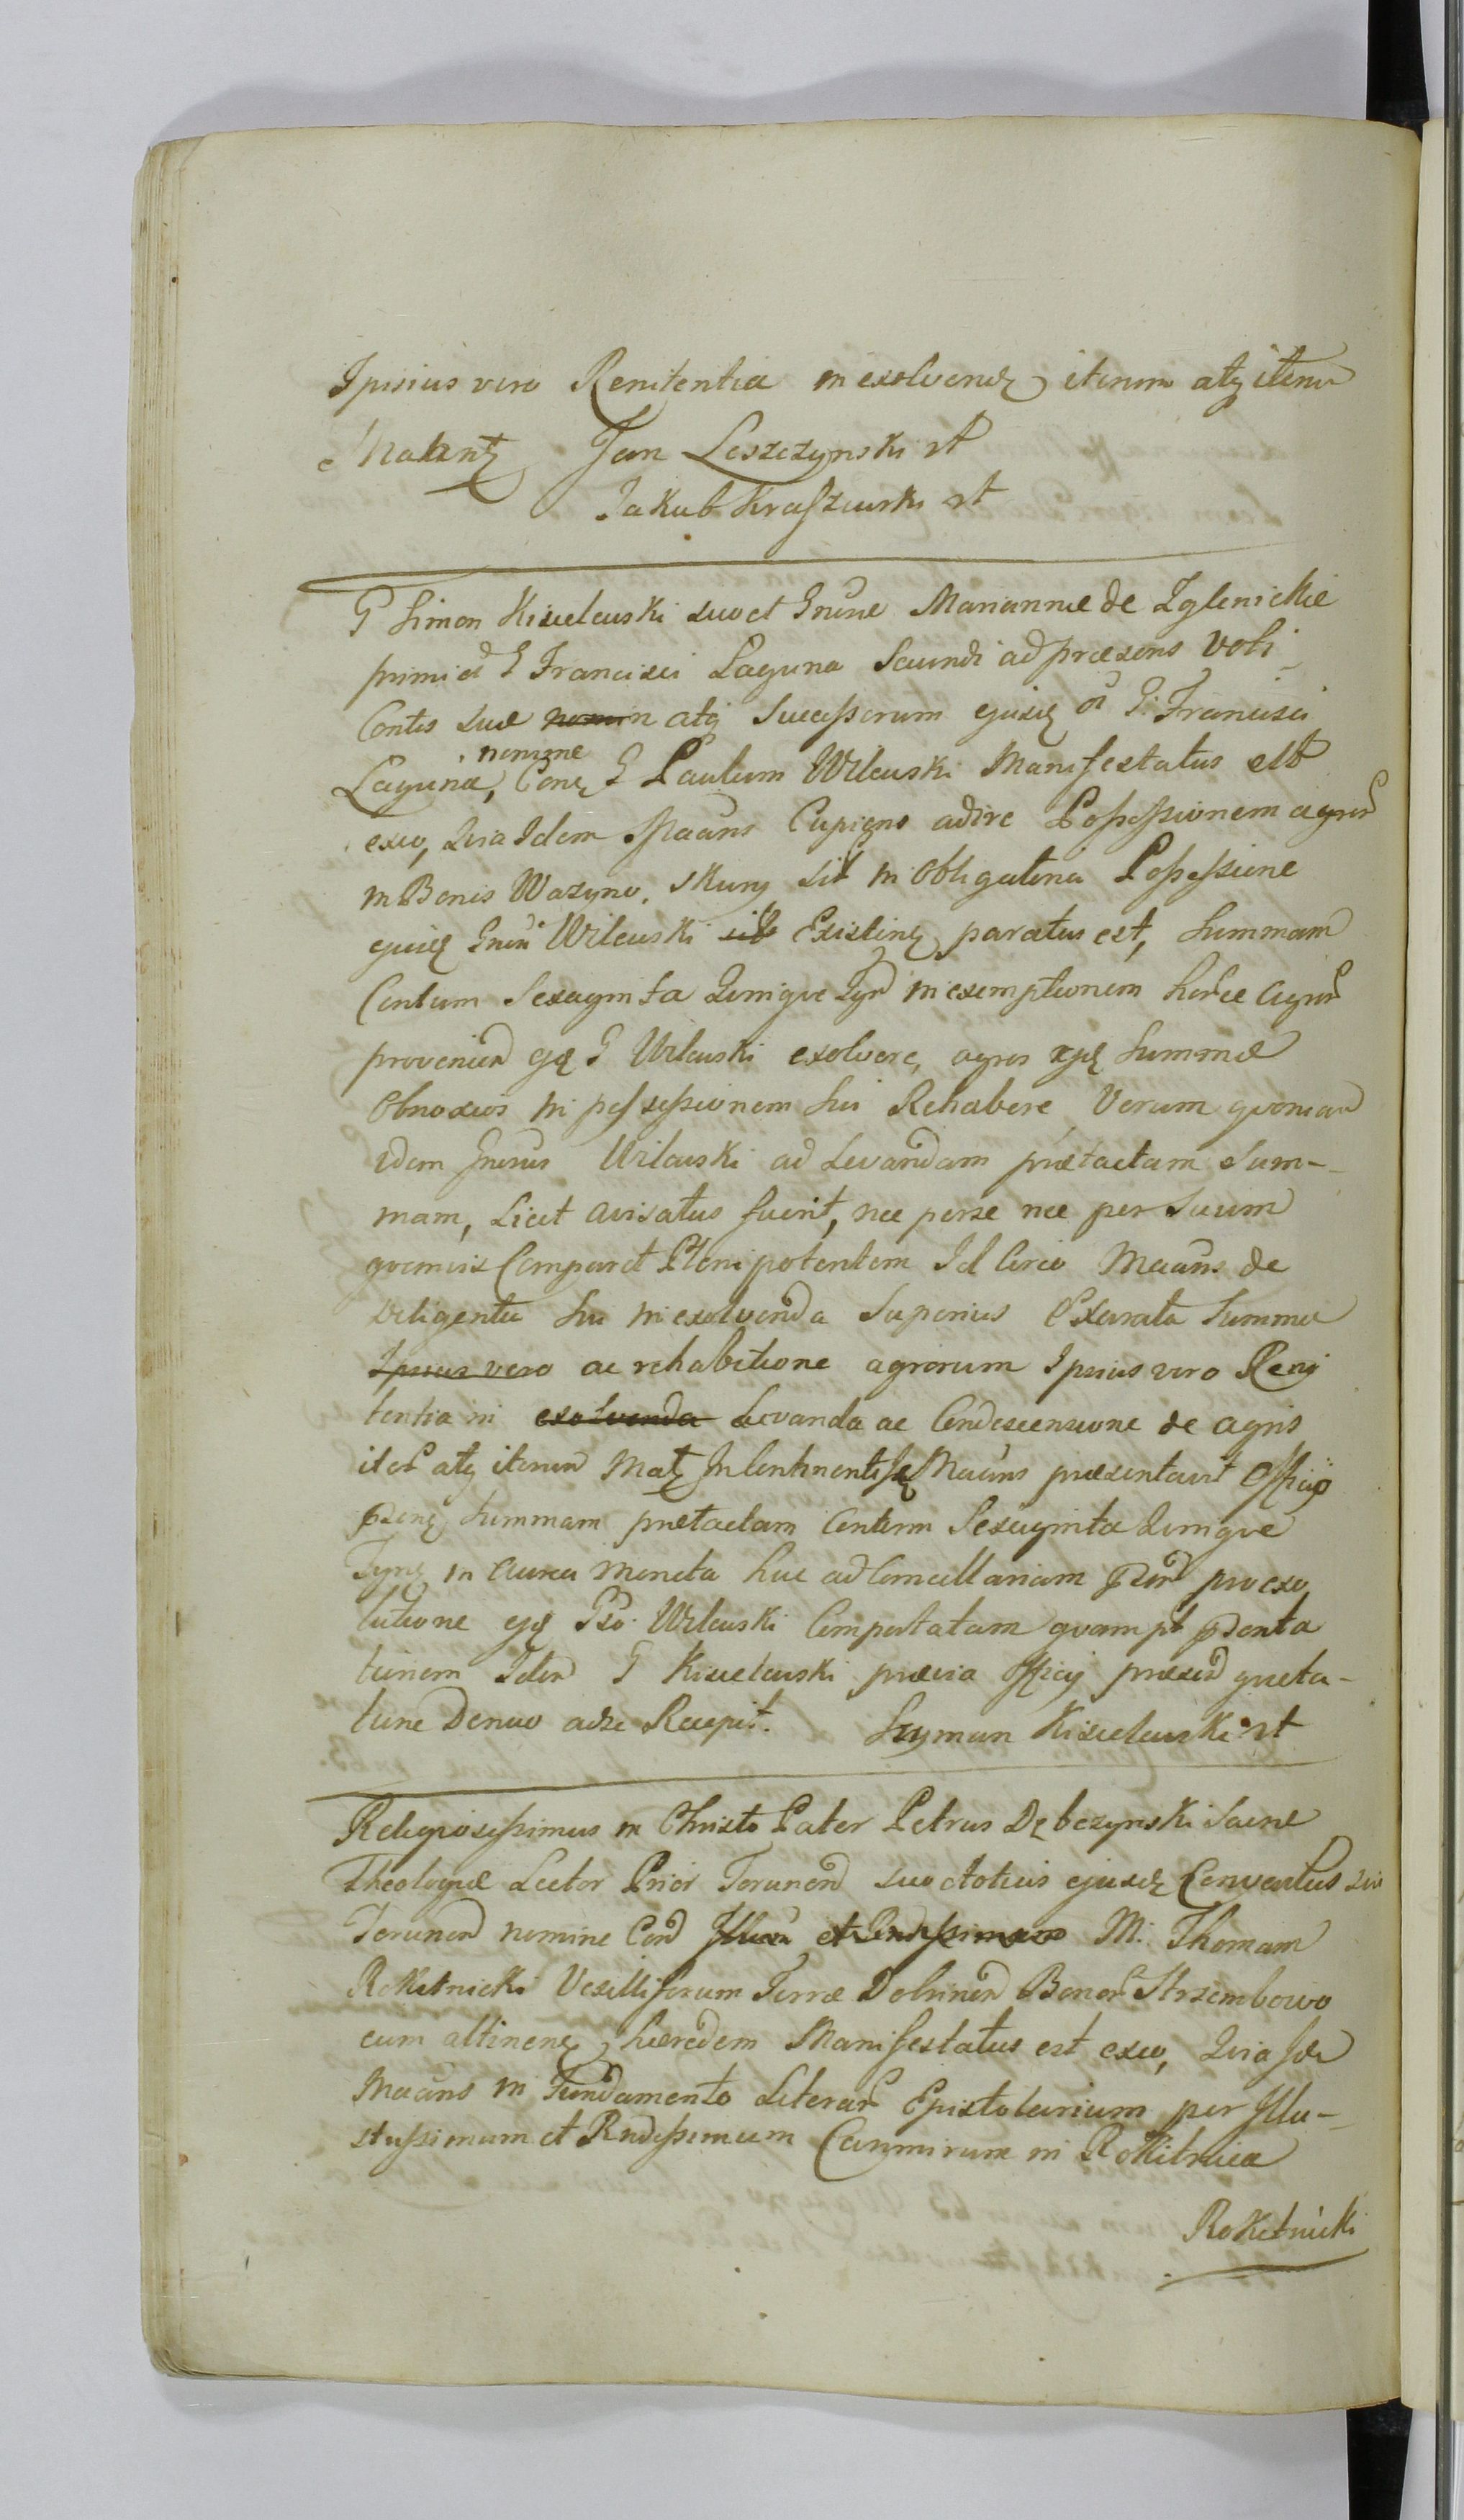 Ipsius vero Renitentia in exolvend iterum atq iteru
Jan Leszczynski mp
Jakub Kraszewski mp
G Simon Kisielewski suo et Gnusae Mariannae de Zglenickie
primi et G Francisci Laguna Secundi ad praesens Voti
Contis suae nomin atq Successorum ejusd G: Francisci
nomine
Lagunae, G Paulum Wilewski Manifestatus est
exeo, Quia Idem Maans Cupiens adire Possessionem agror
in Bonis Wazyno, sit in obligatoria Possessione
ejusd Wilewski sib Existend paratus est, Summam
Centum Sexaginta Quinque in exemptionem horce agror
provenien G Wilewski exolvere, agros Summae
obnoxios in possessionem sui Rehabere Verum quoniam
idem Gnosus Wilewski ad Levandam praetactam Sum-
mam, Licet avisatus fuerit, nec per se nec per Suum
quemvis Comparet Plenipotentem Id Circo Maans de
diligentia sui in exolvenda Superius exarata Summa
Ipsius vero ac rehabitione agrorum Ipsius vero Reni
tentia in exolvenda Levanda ac Condescensione de agris
iter atq iterum Mat In Continenti Maans praesentavit Officio
Summam praetactam Centum Sexaginta Quinque
Tynf in aurea Moneta huc ad Cancellariam pro exo
lutione Wilewski Comportatam quam pt praesenta
tionem Idem G Kisielewski praevia Officij praesen quieta-
tione Denuo ad se Recepit. Szymon Kisielewski mp
Religiosissimus in Christo Pater Petrus Dębczynski Sacrae
Theologiae Lector Prior Torunen suo et totius ejusd Conventus sui
Torunen nomine Con Illum et Rndissimum M: Thomam
Rokitnicki Vexilliferum Terrae Dobrinen Bonor Strzembowo
cum attinen haeredem Manifestatus est exeo, Quia Idem
Maans in Fundamento Literar Epistolarium per Illu-
strissimum et Rndissimum Casimirum in Rokitnica
Rokitnicki